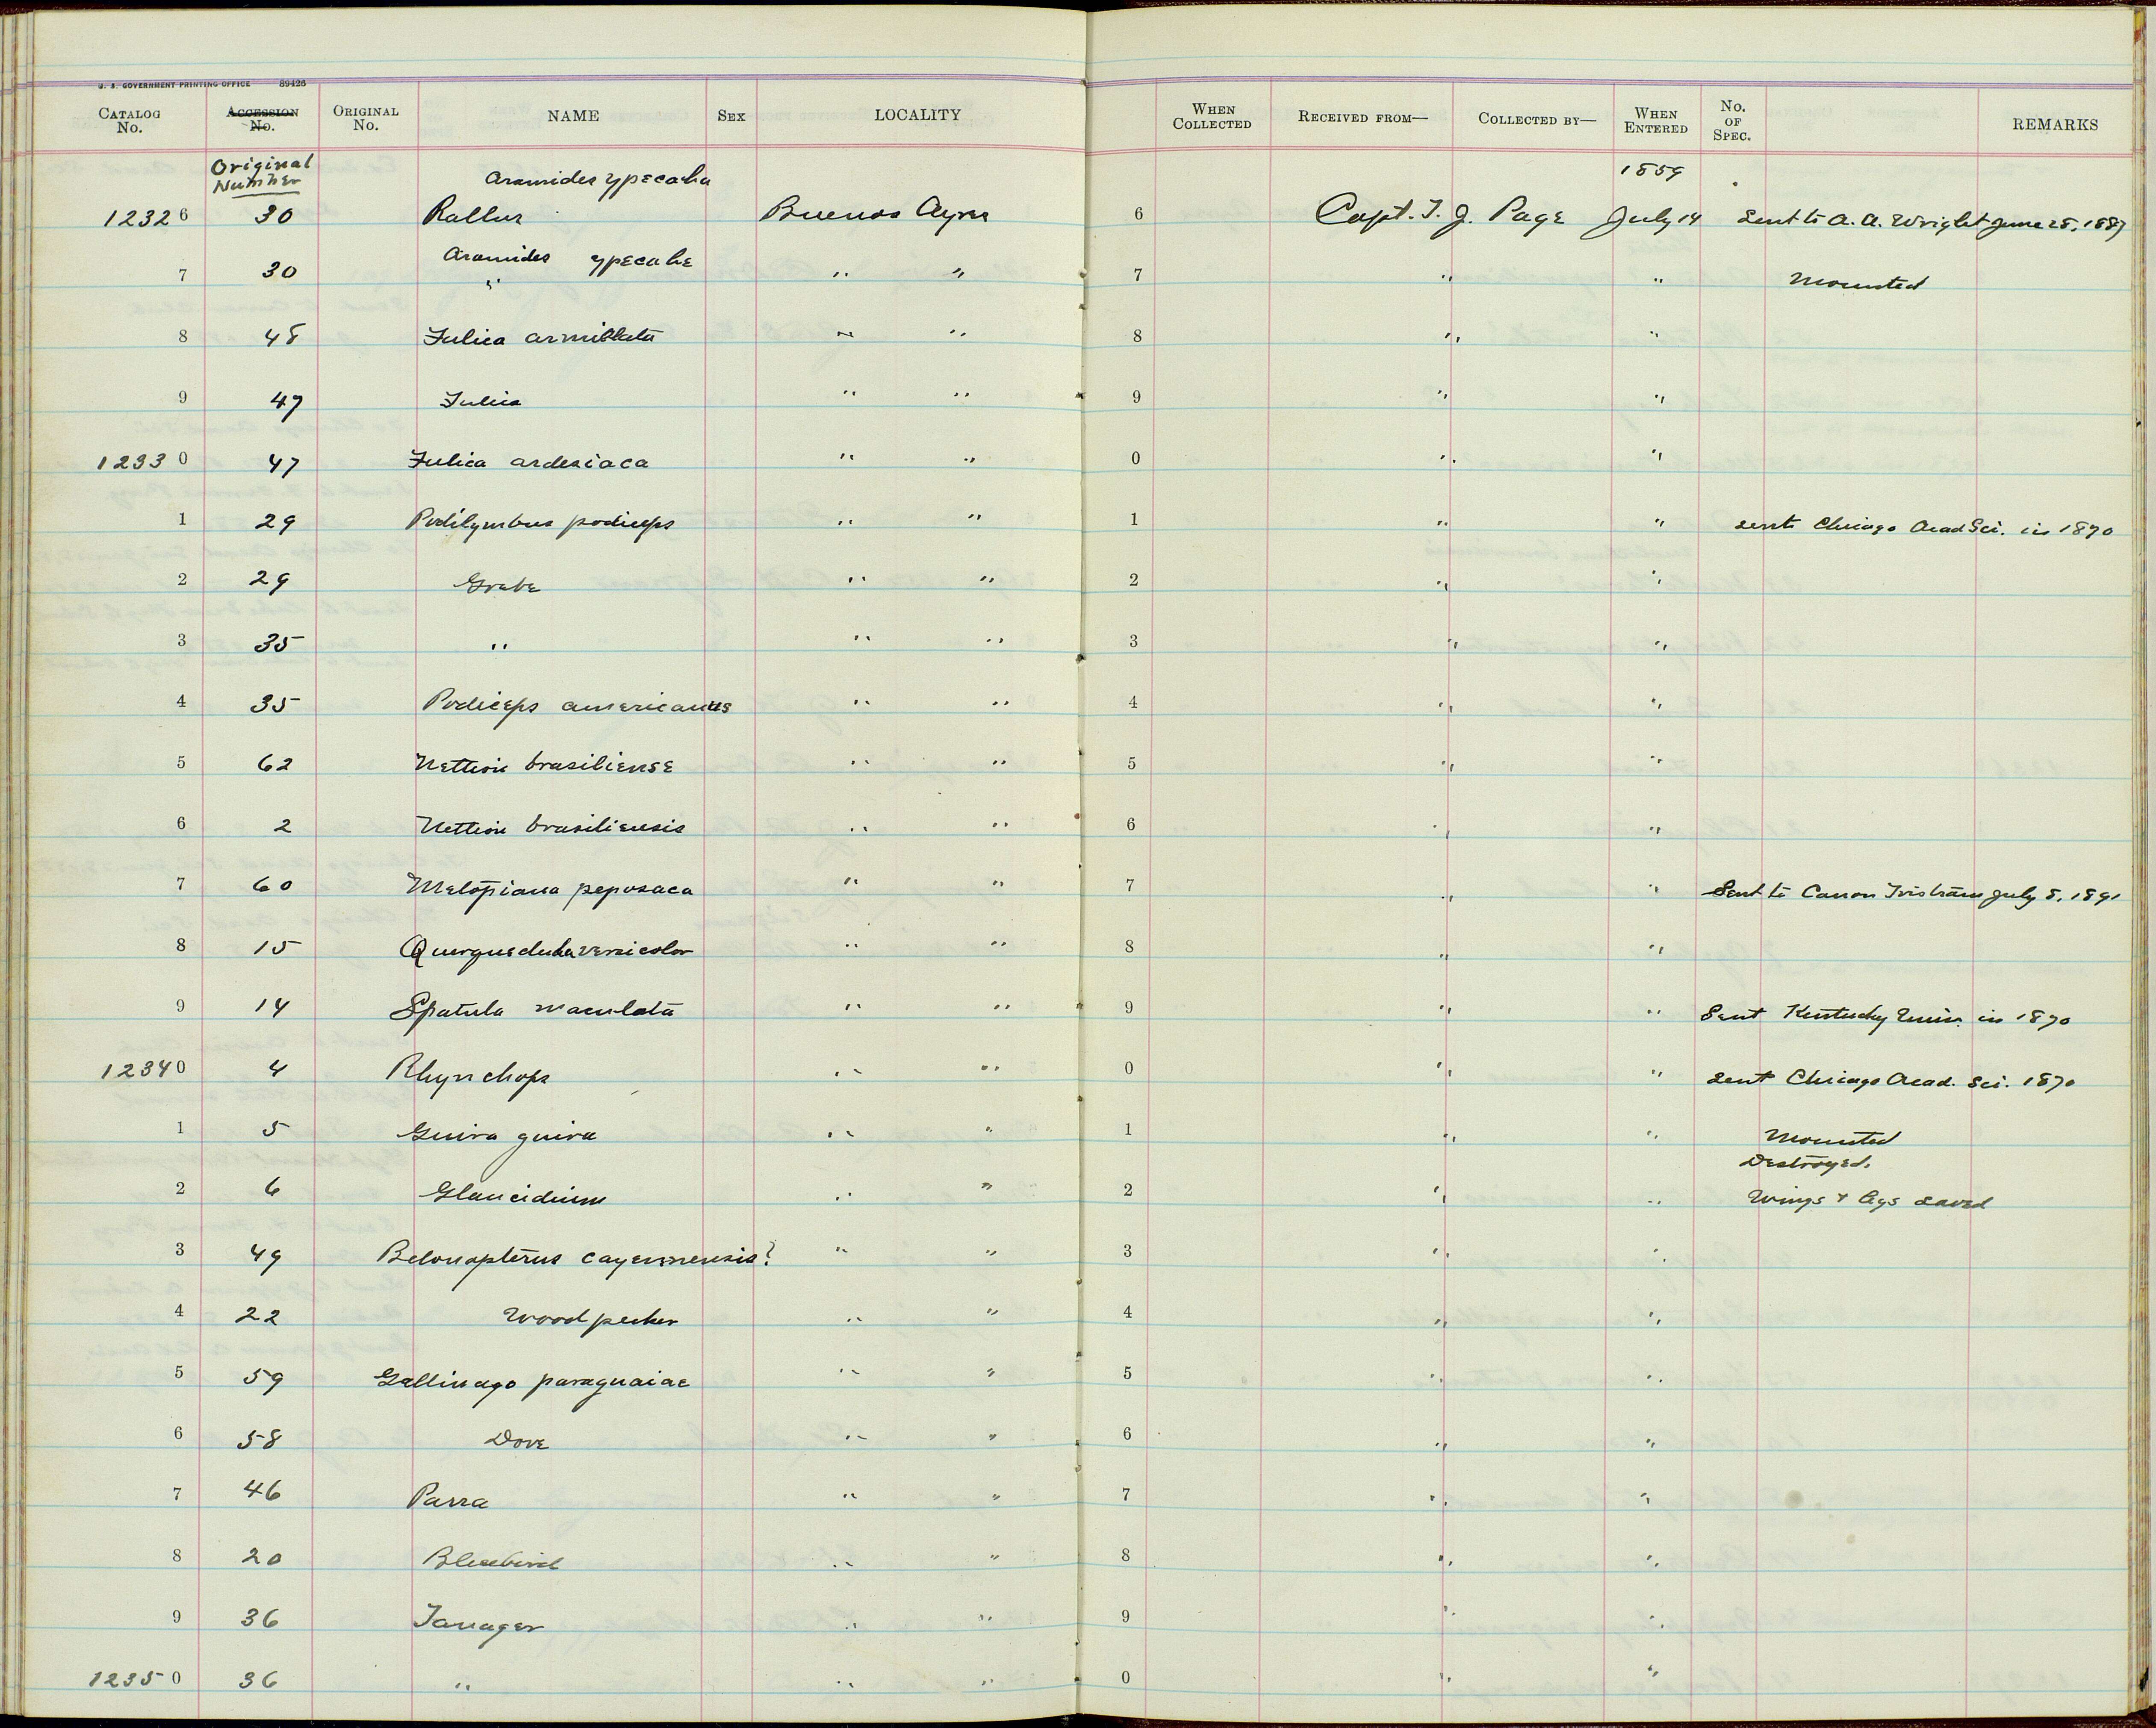 U. S. GOVERNMENT PRINTING OFFICE 89426
CATALOG No. ACCESSION No. ORIGINAL No. NAME SEX LOCALITY WHEN COLLECTED RECEIVED FROM— COLLECTED BY— WHEN ENTERED No. OF SPEC. REMARKS
Original Number Aramides ypecaha 1859
12326 30 Rallus Buenos Ayres 6 Capt. T. J. Page July 14 Sent to A. A. Wright June 28, 1887
Aramides ypecahe
7 30 " " " 7 " " Mounted
8 48 Fulica armillata " " 8 " "
9 47 Fulica " " 9 " "
12330 47 Fulica ardesiaca " " 0 " "
1 29 Podilymbus podiceps " " 1 " " sent Chicago Acad Sci. in 1870
2 29 Grebe " " 2 " "
3 35 " " " 3 " "
4 35 Podiceps americanus " " 4 " "
5 62 Nettion brasiliense " " 5 " "
6 2 Nettion brasiliensis " " 6 " "
7 60 Metopiana peposaca " " 7 " " Sent to Canon Tristram July 8, 1891
8 15 Querquedula versicolor " " 8 " "
9 14 Spatula maculata " " 9 " " Sent Kentucky Univ. in 1870
12340 4 Rhynchops " " 0 " " sent Chicago Acad. Sci. 1870
1 5 Guira guira " " 1 " " Mounted
Destroyed.
2 6 Glaucidium " " 2 " " Wings & legs saved
3 49 Belonopterus cayennensis? " " 3 " "
4 22 Woodpecker " " 4 " "
5 59 Gallinago paraguaiae " " 5 " "
6 58 Dove " " 6 " "
7 46 Parra " " 7 " "
8 20 Bluebird " " 8 " "
9 36 Tanager " " 9 " "
12350 36 " " " 0 " "